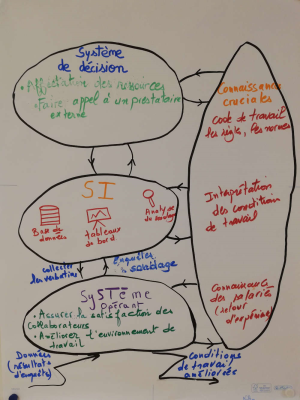 Système
de décision
• Affectation des ressources
• Faire appel à un prestataire
externe
Connaissances
cruciales
code de travail
les règles, les normes
SI
Base de
données
tableaux
de bord
Analyse
de
Interprétation
des conditions
de travail
collecter
les verbatims
enquêtes
sondage
Système
opérant
• Assurer la satisfaction des
collaborateurs
• Améliorer l'environnement de
travail
Connaissance
des salariés
(retour
d'expérience)
Données
(résultats
d'enquête)
conditions
de travail
améliorées